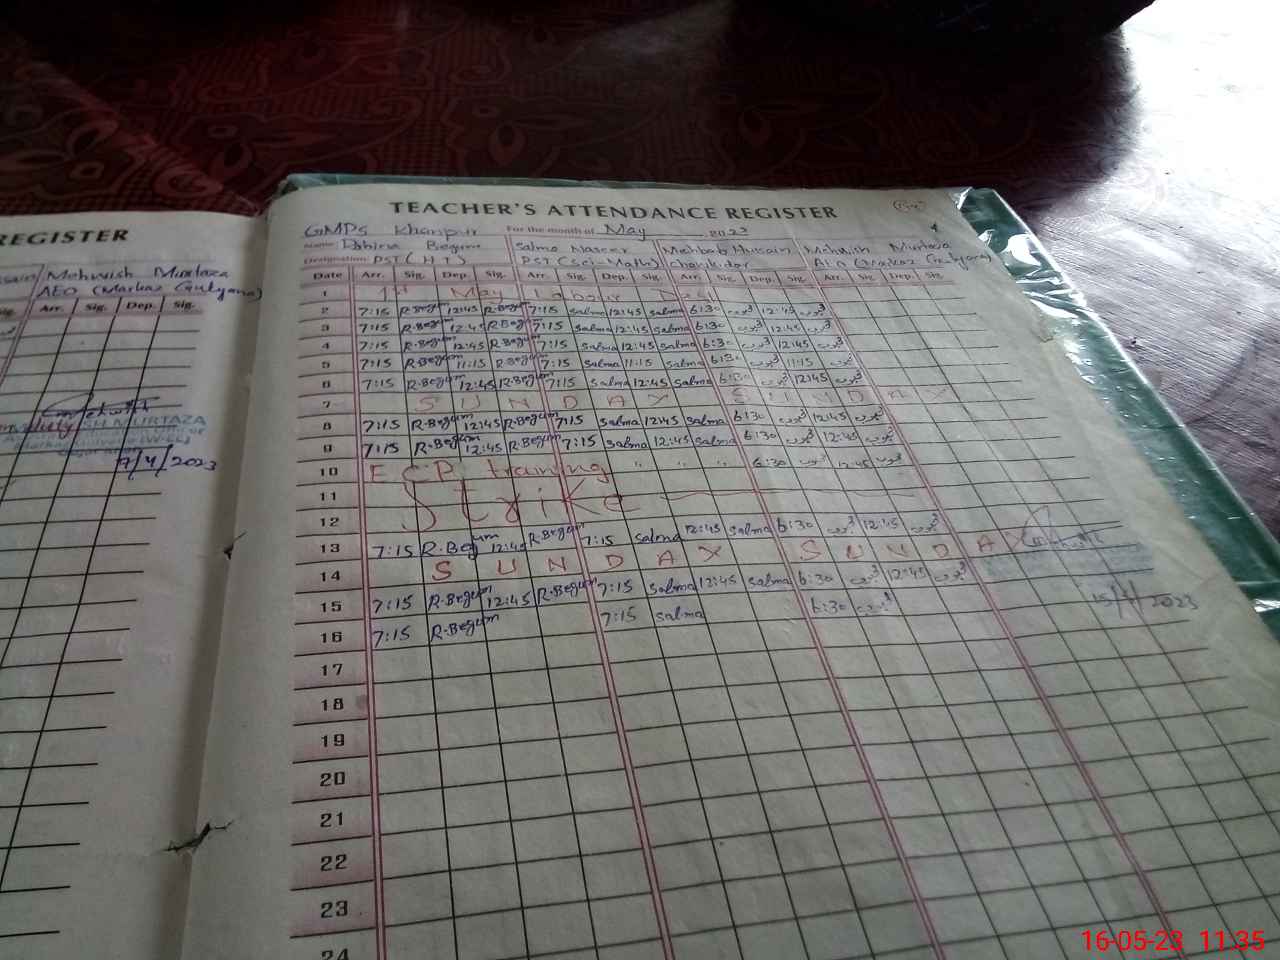 REGISTER
Mehwish Murtaza
AEO (Markaz Gulyana)
Arr. Sig. Dep. Sig.
SH MURTAZA
7/4/2023
TEACHER'S ATTENDANCE REGISTER
GMPS Khanpur For the month of May 2023
Name Begum Salma Naseer Mehbab Hussain Mehwish Murtaza
Designation PST (HT) PST (Sci-Math) Chowkidar AEO (Markaz Gulyana)
Date Arr. Sig. Dep. Sig. Arr. Sig. Dep. Sig. Arr. Sig. Dep. Sig. Arr. Sig. Dep. Sig.
1 1st May Labour Day
2 7:15 R.Begum 12:45 R.Begum 7:15 Salma 12:45 Salma 6:30 12:45
3 7:15 R.Begum 12:45 R.Begum 7:15 Salma 12:45 Salma 6:30 12:45
4 7:15 R.Begum 12:45 R.Begum 7:15 Salma 12:45 Salma 6:30 12:45
5 7:15 R.Begum 11:15 R.Begum 7:15 Salma 11:15 Salma 6:30 11:15
6 7:15 R.Begum 12:45 R.Begum 7:15 Salma 12:45 Salma 6:30 12:45
7 S U N D A Y S U N D A Y
8 7:15 R.Begum 12:45 R.Begum 7:15 Salma 12:45 Salma 6:30 12:45
9 7:15 R.Begum 12:45 R.Begum 7:15 Salma 12:45 Salma 6:30 12:45
10 training " " " 6:30 12:45
11 Strike
12
13 7:15 R.Beg um 12:45 R.Begum 7:15 Salma 12:45 Salma 6:30 12:45
14 S U N D A Y S U N D A Y
15 7:15 R.Begum 12:45 R.Begum 7:15 Salma 12:45 Salma 6:30 12:45
16 7:15 R.Begum 7:15 Salma 6:30
2023
17
18
19
20
21
22
23
24
16-05-23 11:35